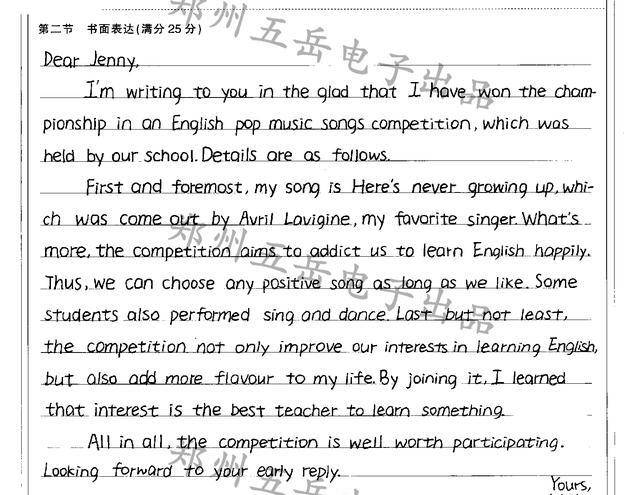 第二节 书面表达(满分25分)
Dear Jenny,
I'm writing to you in the glad that I have won the cham-
pionship in an English pop music songs competition, which was
held by our school. Details are as follows.
First and foremost, my song is Here's never growing up, whi-
ch was come out by Avril Lavigine, my favorite singer. What's
more, the competition aims to addict us to learn English happily.
Thus, we can choose any positive song as long as we like. Some
students also performed sing and dance. Last but not least,
the competition not only improve our interests in learning English,
but also add more flavour to my life. By joining it, I learned
that interest is the best teacher to learn something.
All in all, the competition is well worth participating.
Looking forward to your early reply.
Yours,
郑州五岳电子出品
郑州五岳电子出品
郑州五岳电子出品